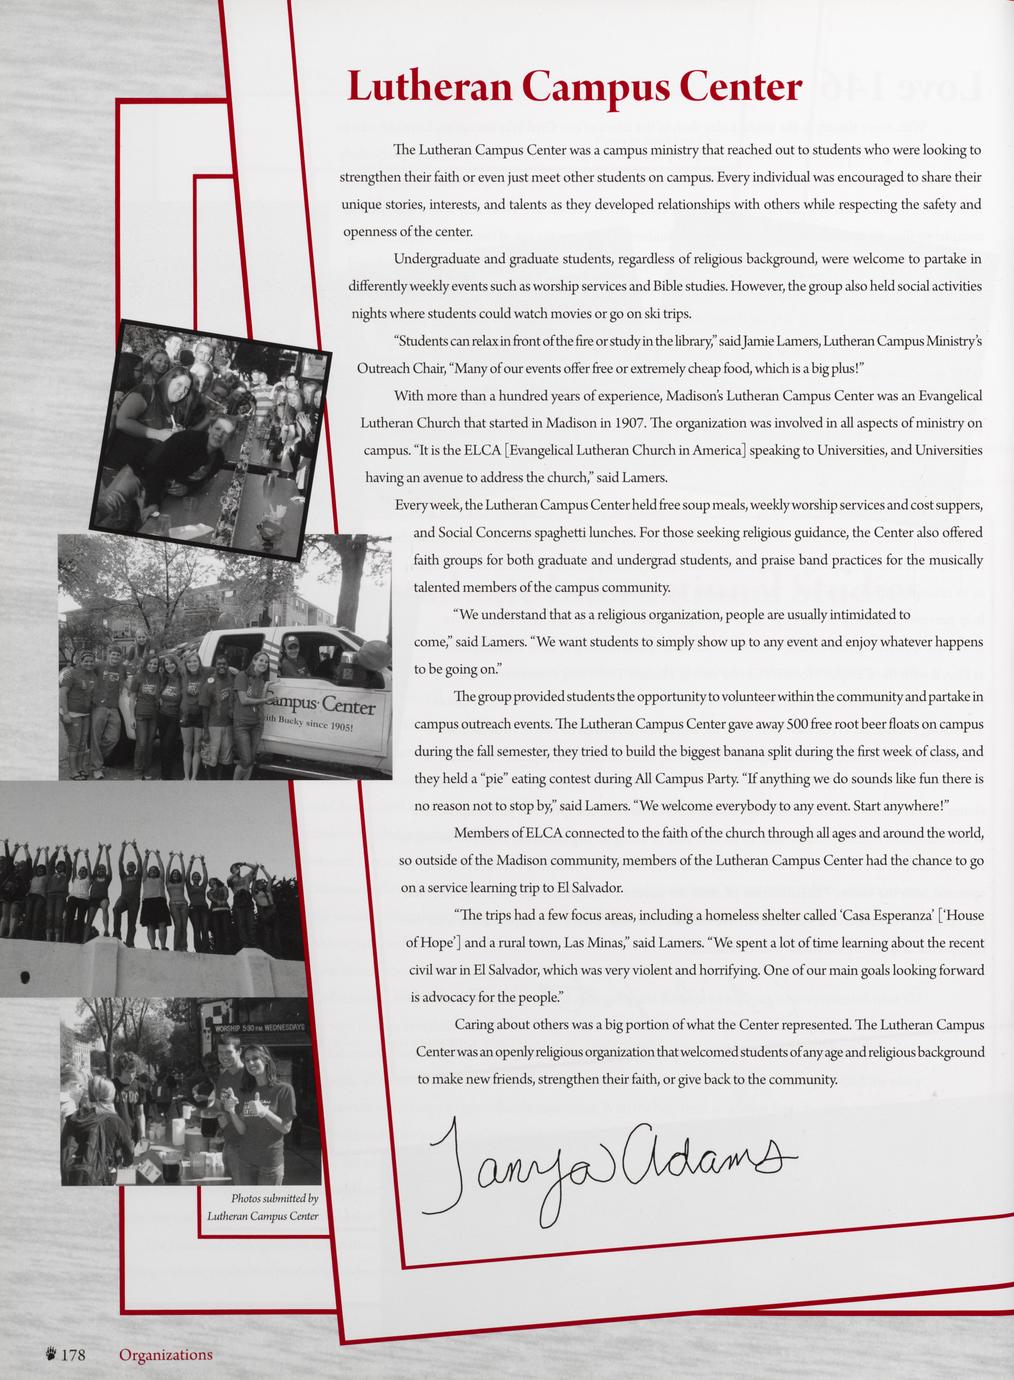 Lutheran Campus Center
The Lutheran Campus Center was a campus ministry that reached out to students who were looking to
strengthen their faith or even just meet other students on campus. Every individual was encouraged to share their
unique stories, interests, and talents as they developed relationships with others while respecting the safety and
openness of the center.
Undergraduate and graduate students, regardless of religious background, were welcome to partake in
differently weekly events such as worship services and Bible studies. However, the group also held social activities
nights where students could watch movies or go on ski trips.
“Students can relax in front of the fire or study in the library,” said Jamie Lamers, Lutheran Campus Ministry’s
Outreach Chair, “Many of our events offer free or extremely cheap food, which is a big plus!”
With more than a hundred years of experience, Madison’s Lutheran Campus Center was an Evangelical
Lutheran Church that started in Madison in 1907. The organization was involved in all aspects of ministry on
campus. “It is the ELCA [Evangelical Lutheran Church in America] speaking to Universities, and Universities
having an avenue to address the church,” said Lamers.
Every week, the Lutheran Campus Center held free soup meals, weekly worship services and cost suppers,
and Social Concerns spaghetti lunches. For those seeking religious guidance, the Center also offered
faith groups for both graduate and undergrad students, and praise band practices for the musically
talented members of the campus community.
“We understand that as a religious organization, people are usually intimidated to
come,” said Lamers. “We want students to simply show up to any event and enjoy whatever happens
to be going on.”
The group provided students the opportunity to volunteer within the community and partake in
campus outreach events. The Lutheran Campus Center gave away 500 free root beer floats on campus
during the fall semester, they tried to build the biggest banana split during the first week of class, and
they held a “pie” eating contest during All Campus Party. “If anything we do sounds like fun there is
no reason not to stop by,” said Lamers. “We welcome everybody to any event. Start anywhere!”
Members of ELCA connected to the faith of the church through all ages and around the world,
so outside of the Madison community, members of the Lutheran Campus Center had the chance to go
on a service learning trip to El Salvador.
“The trips had a few focus areas, including a homeless shelter called ‘Casa Esperanza’ [‘House
of Hope’] and a rural town, Las Minas,” said Lamers. “We spent a lot of time learning about the recent
civil war in El Salvador, which was very violent and horrifying. One of our main goals looking forward
is advocacy for the people.”
Caring about others was a big portion of what the Center represented. The Lutheran Campus
Center was an openly religious organization that welcomed students of any age and religious background
to make new friends, strengthen their faith, or give back to the community.
Tanya Adams
Campus Center
ith Bucky since 1905!
WORSHIP 5:30 PM WEDNESDAYS
Photos submitted by
Lutheran Campus Center
178 Organizations